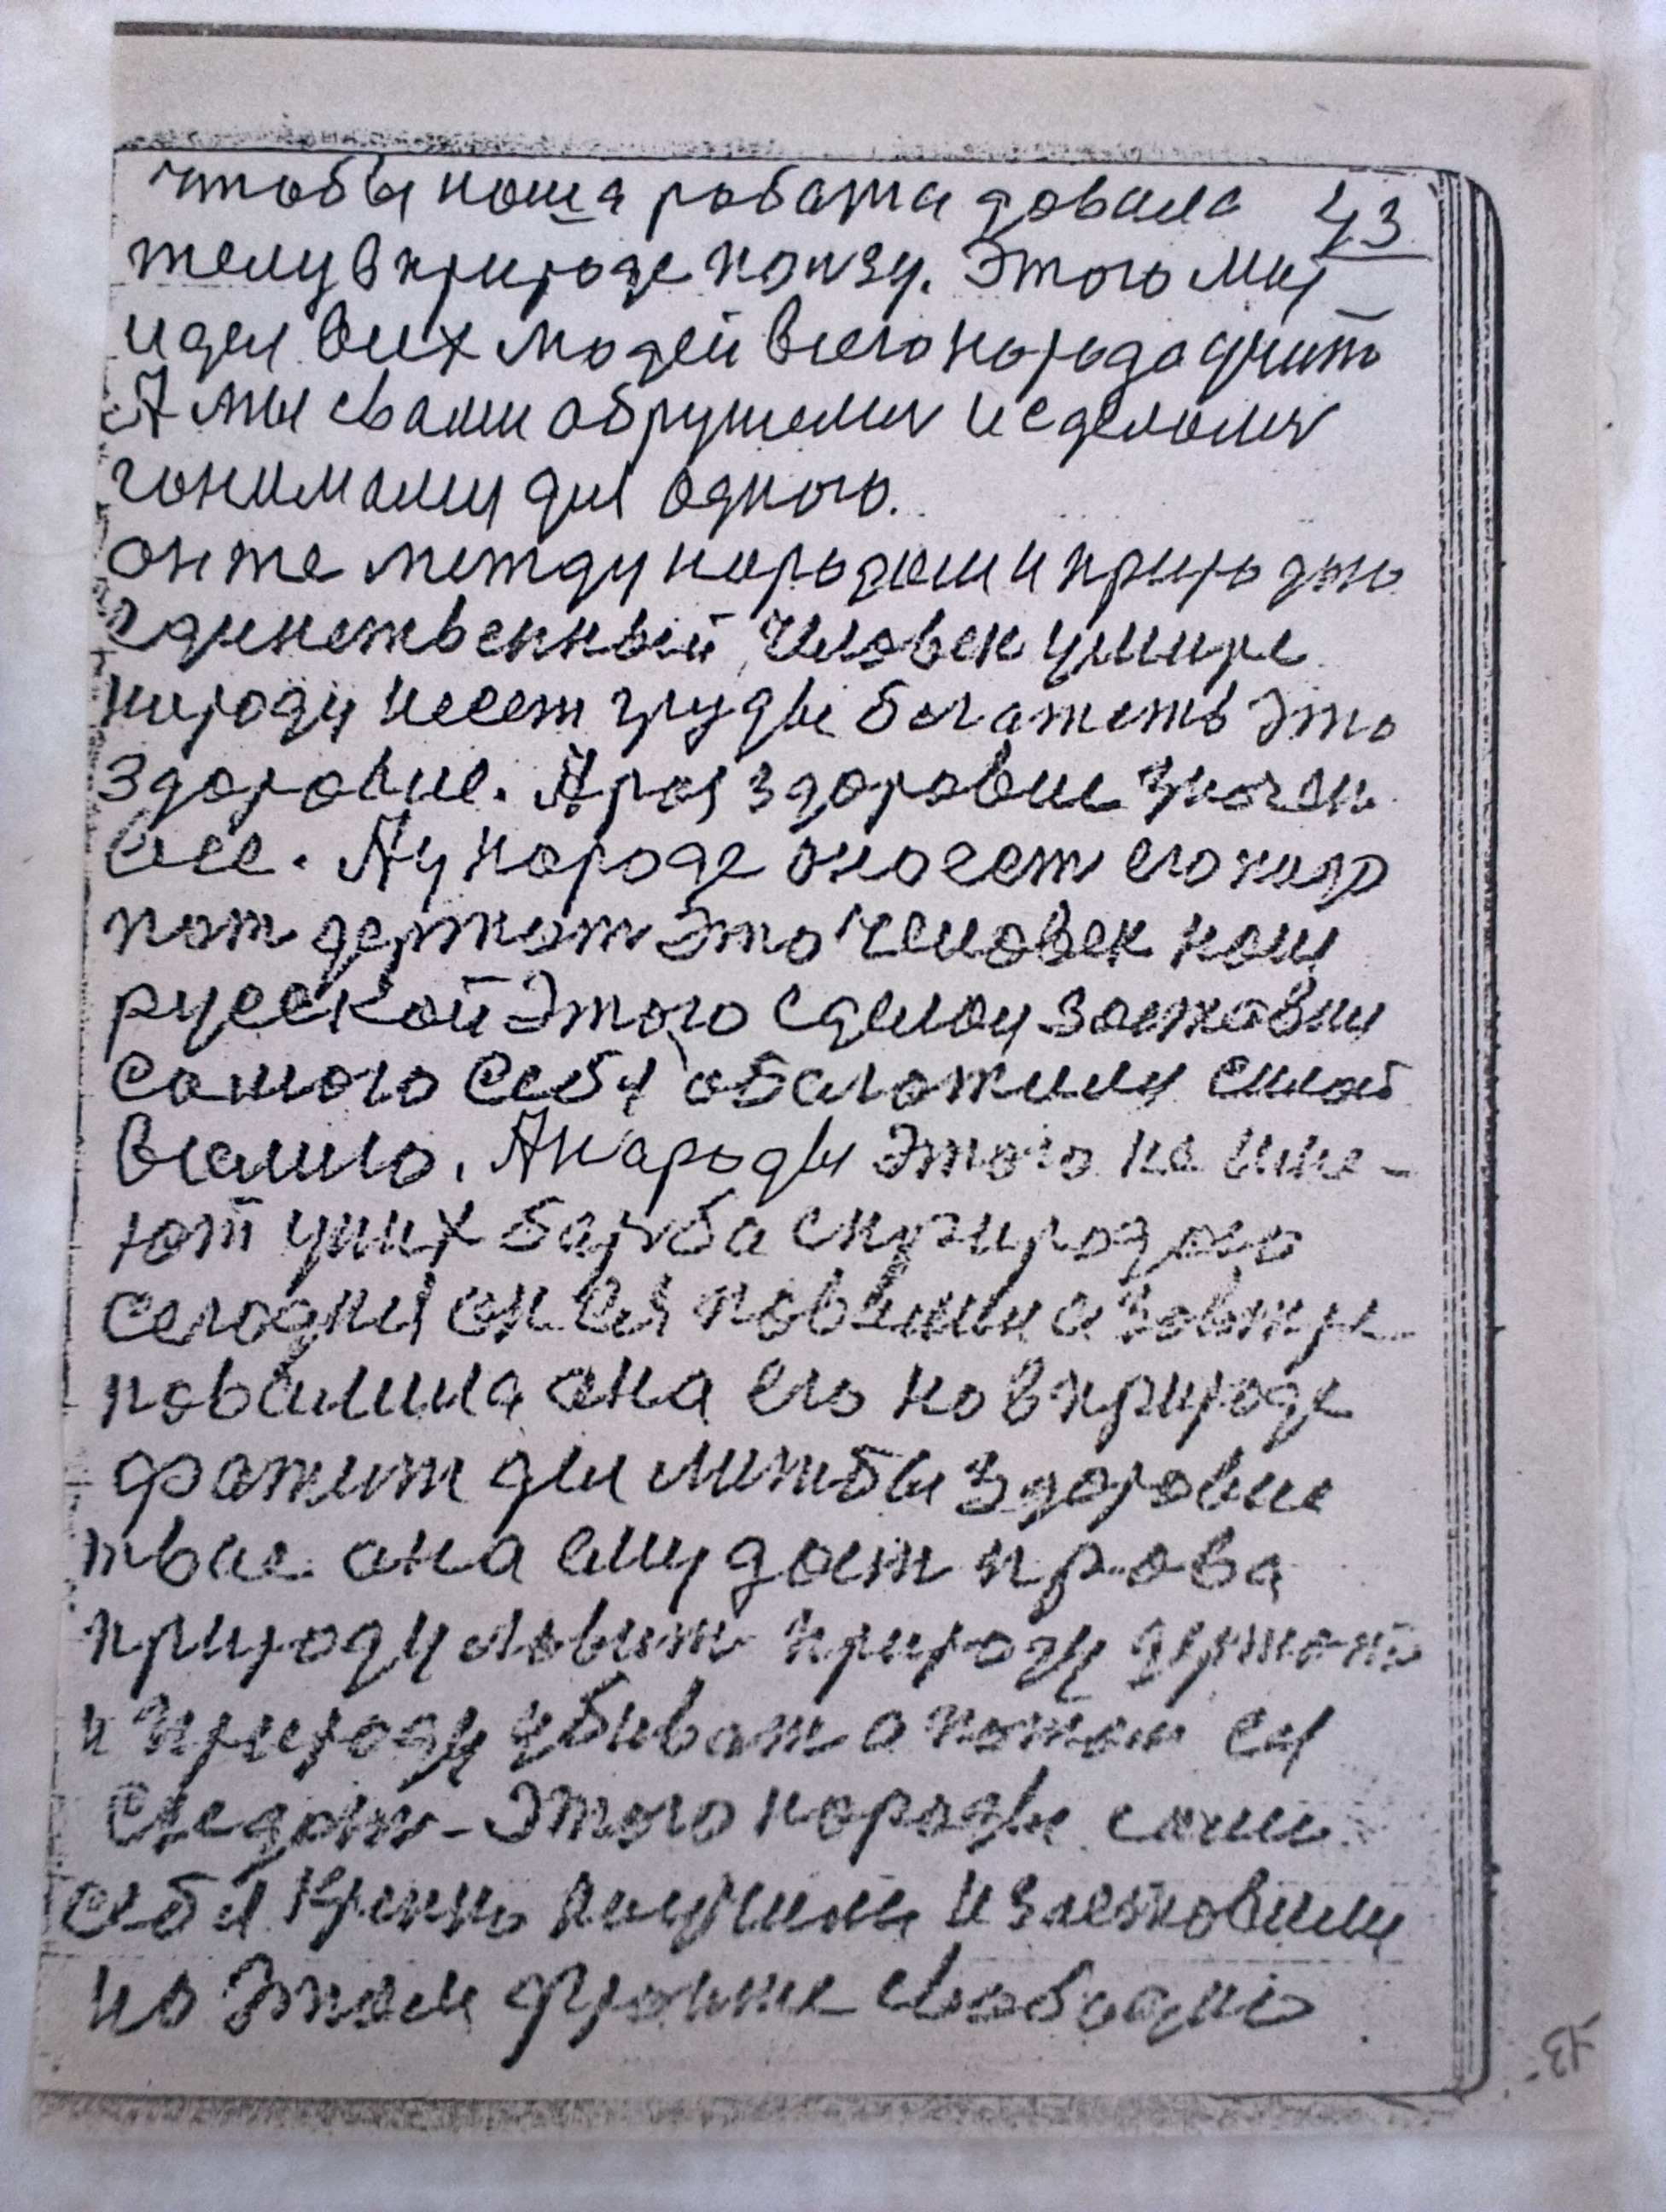 чтобы наша работа давала 43
телу в природе ползу. Этого мир
идея всех людей всего народа учит
А мы свами обрушелись и сделолись
для одного.
он же между народами и природаю
единственный человек у мире
народу несет труды богатеть это
здоровие. А раз здоровие значен
все. А у народе оно есть его надо
держат это человек наш
русской этого сделоу заставил
самого себя
А народы этого не име-
ют у них барьба сприродою
сегодня он ея повалил а завтре
повалила она его но в природе
здоровие
твае. она ему даст права
природу ловит природу держат
и природу убиват а потом ея
сьедат - этого народы сами
себя получили и заставили
на этом фронте свободно
43